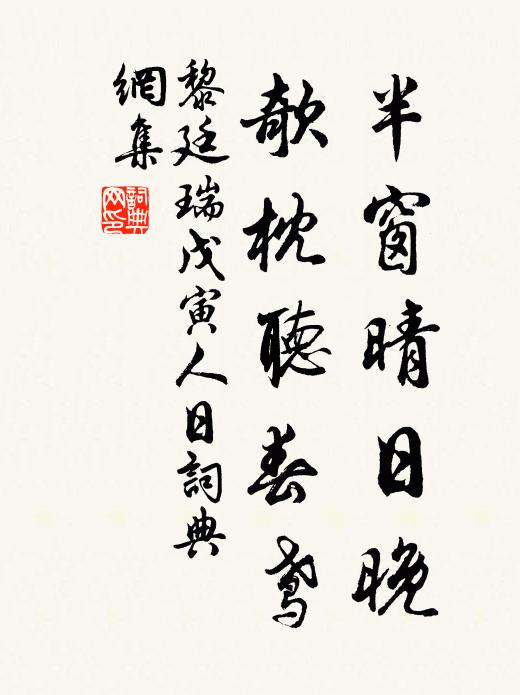 半窗晴日晚
欹枕聽春鳶
黎廷瑞戊寅人日詞典
網集
詞典
网印